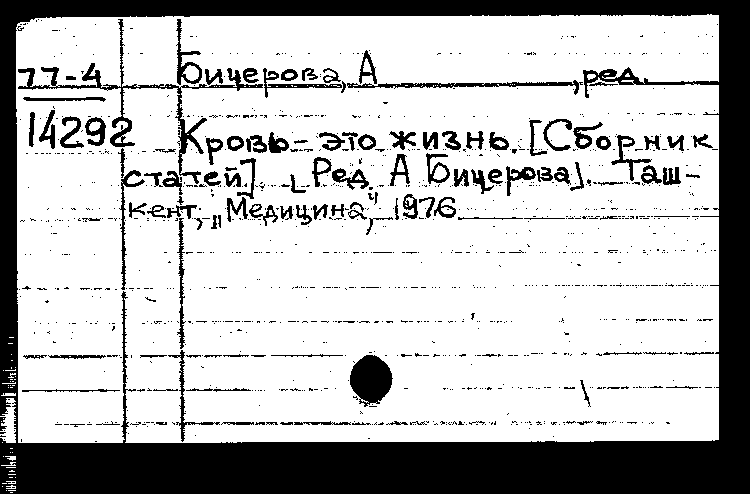 77-4 Бицерова, А , ред.
14292 Кровь - это жизнь. [Сборник
статей]. [Ред. А Бицерова]. Таш-
кент, „Медицина", 1976